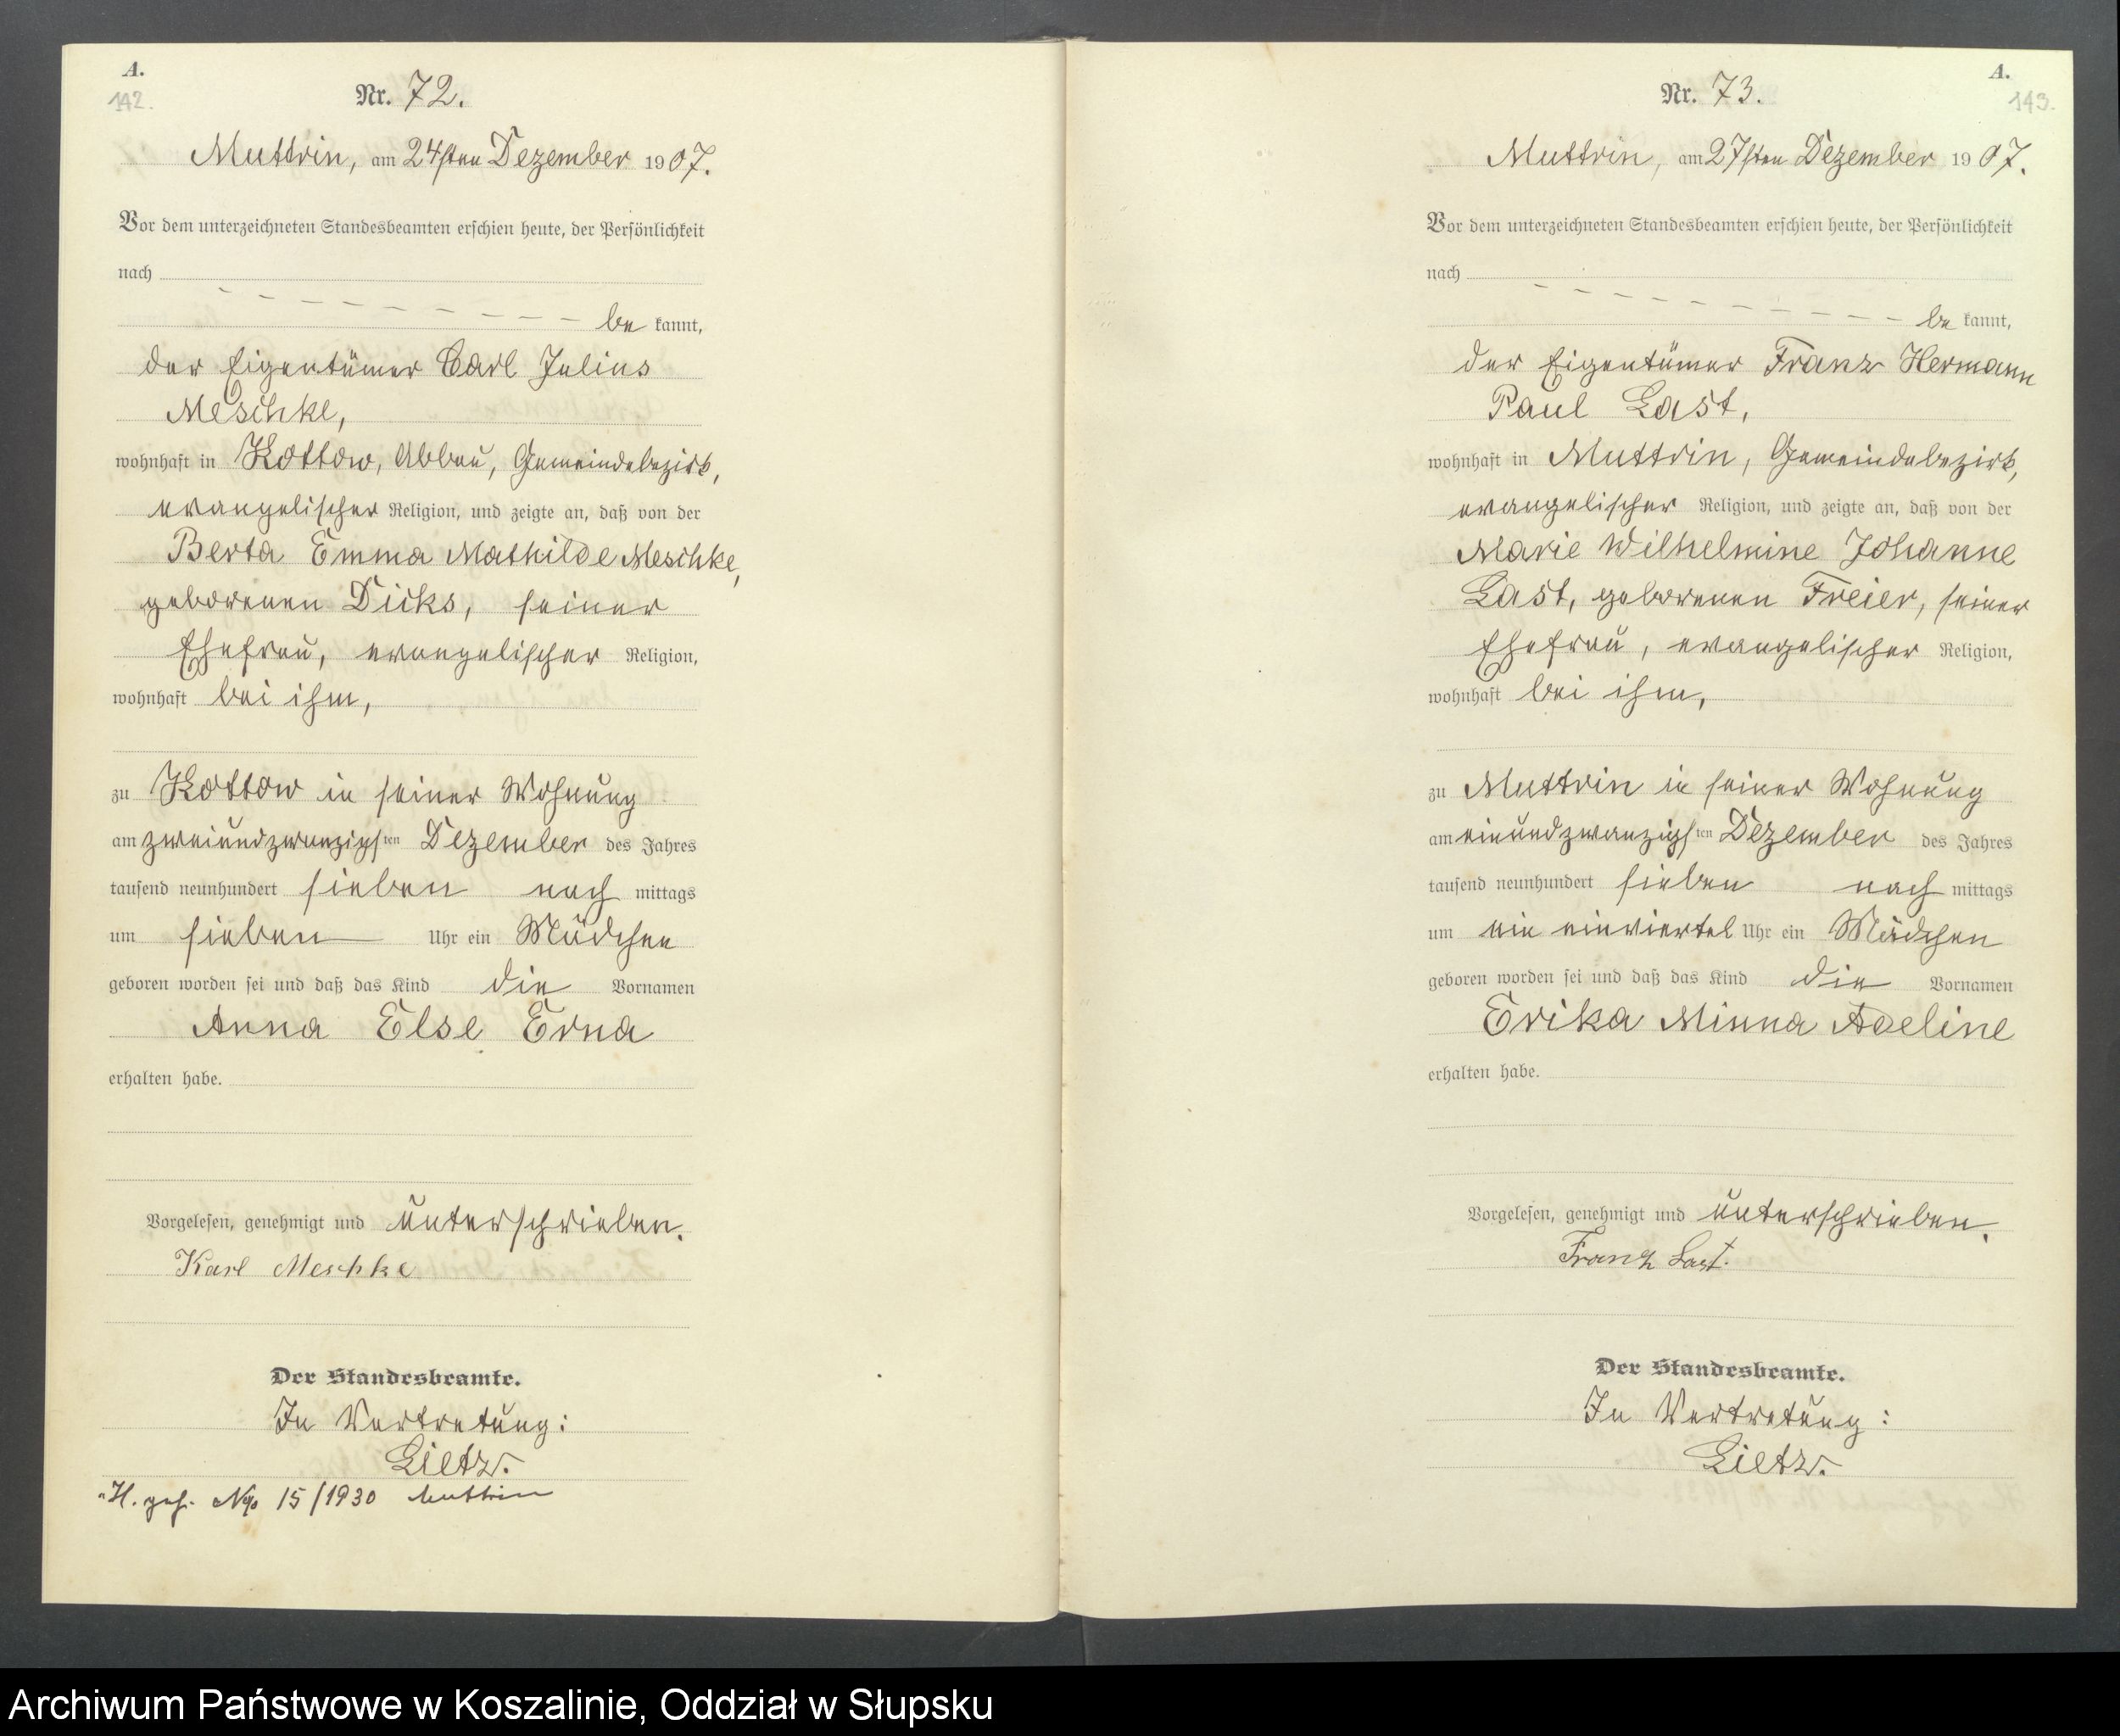 A.
142.
Nr. 72.
Muttrin, am 24sten Dezember 1907.
Vor dem unterzeichneten Standesbeamten erschien heute, der Persönlichkeit
nach
be kannt,
der Eigentümer Carl Julius
Meschke,
wohnhaft in Kottow, Abbau, Gemeindebezirk,
evangelischer Religion, und zeigte an, daß von der
Berta Emma Mathilde Meschke,
geborenen Dicks, seiner
Ehefrau, evangelischer Religion,
wohnhaft bei ihm,
zu Kottow in seiner Wohnung
am zweiundzwanzigsten Dezember des Jahres
tausend neunhundert sieben nach mittags
um sieben Uhr ein Mädchen
geboren worden sei und daß das Kind die Vornamen
Anna Else Erna
erhalten habe.
Vorgelesen, genehmigt und unterschrieben.
Karl Meschke
Der Standesbeamte.
In Vertretung:
Lietz.
H. geh. No 15/1930 Muttrin
A.
143.
Nr. 73.
Muttrin, am 27sten Dezember 1907.
Vor dem unterzeichneten Standesbeamten erschien heute, der Persönlichkeit
nach
be kannt,
der Eigentümer Franz Hermann
Paul Last,
wohnhaft in Muttrin, Gemeindebezirk,
evangelischer Religion, und zeigte an, daß von der
Marie Wilhelmine Johanne
Last, geborenen Freier, seiner
Ehefrau, evangelischer Religion,
wohnhaft bei ihm,
zu Muttrin in seiner Wohnung
am einundzwanzigsten Dezember des Jahres
tausend neunhundert sieben nach mittags
um ein einviertel Uhr ein Mädchen
geboren worden sei und daß das Kind die Vornamen
Erika Minna Adeline
erhalten habe.
Vorgelesen, genehmigt und unterschrieben.
Franz Last.
Der Standesbeamte.
In Vertretung:
Lietz.
Archiwum Państwowe w Koszalinie, Oddział w Słupsku